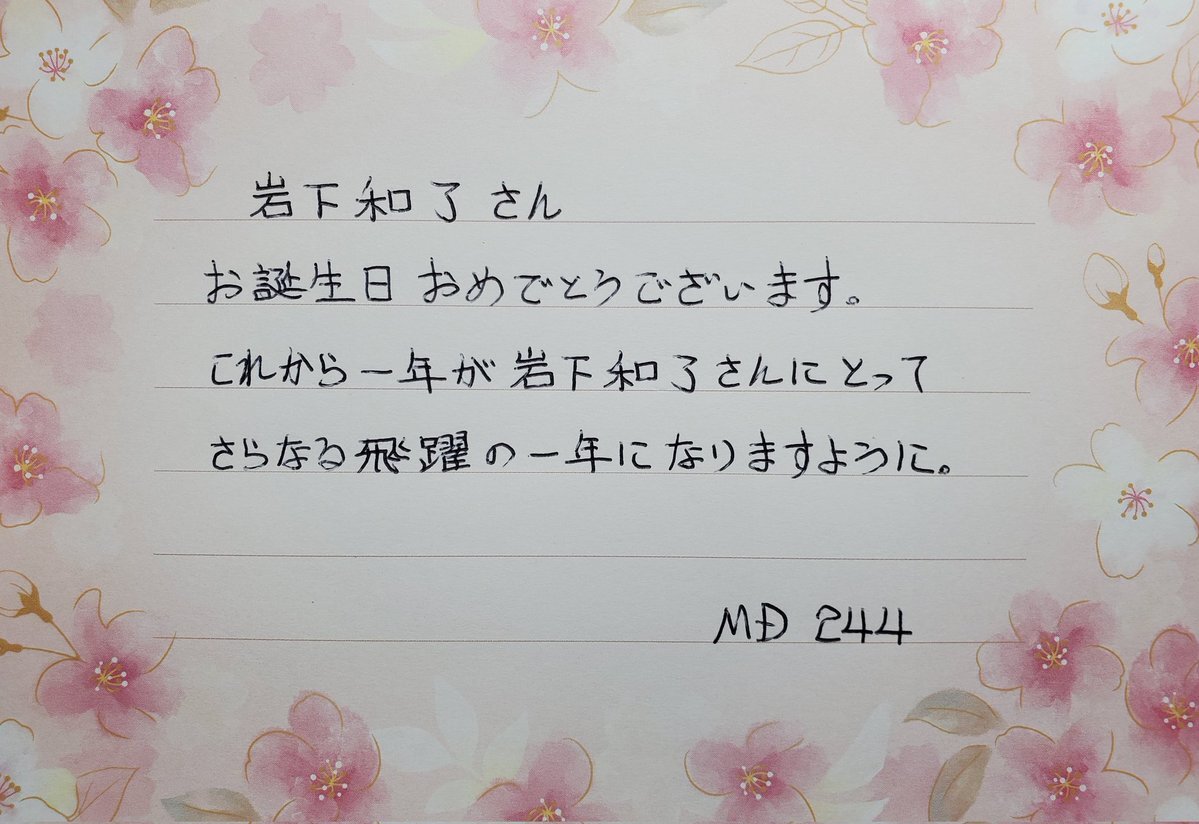 岩下和了さん
お誕生日おめでとうございます。
これから一年が岩下和了さんにとって
さらなる飛躍の一年になりますように。
MD 244